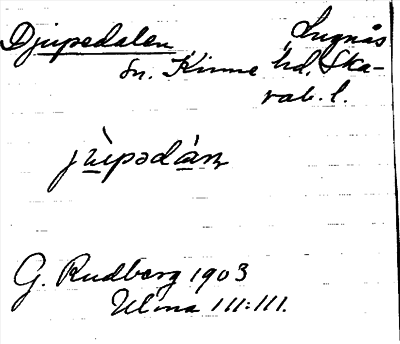 Djupedalen Lugnås
sn. Kinne hd. Ska-
rab. l.
jùpədán
G. Rudberg 1903
Ulma 111:111.